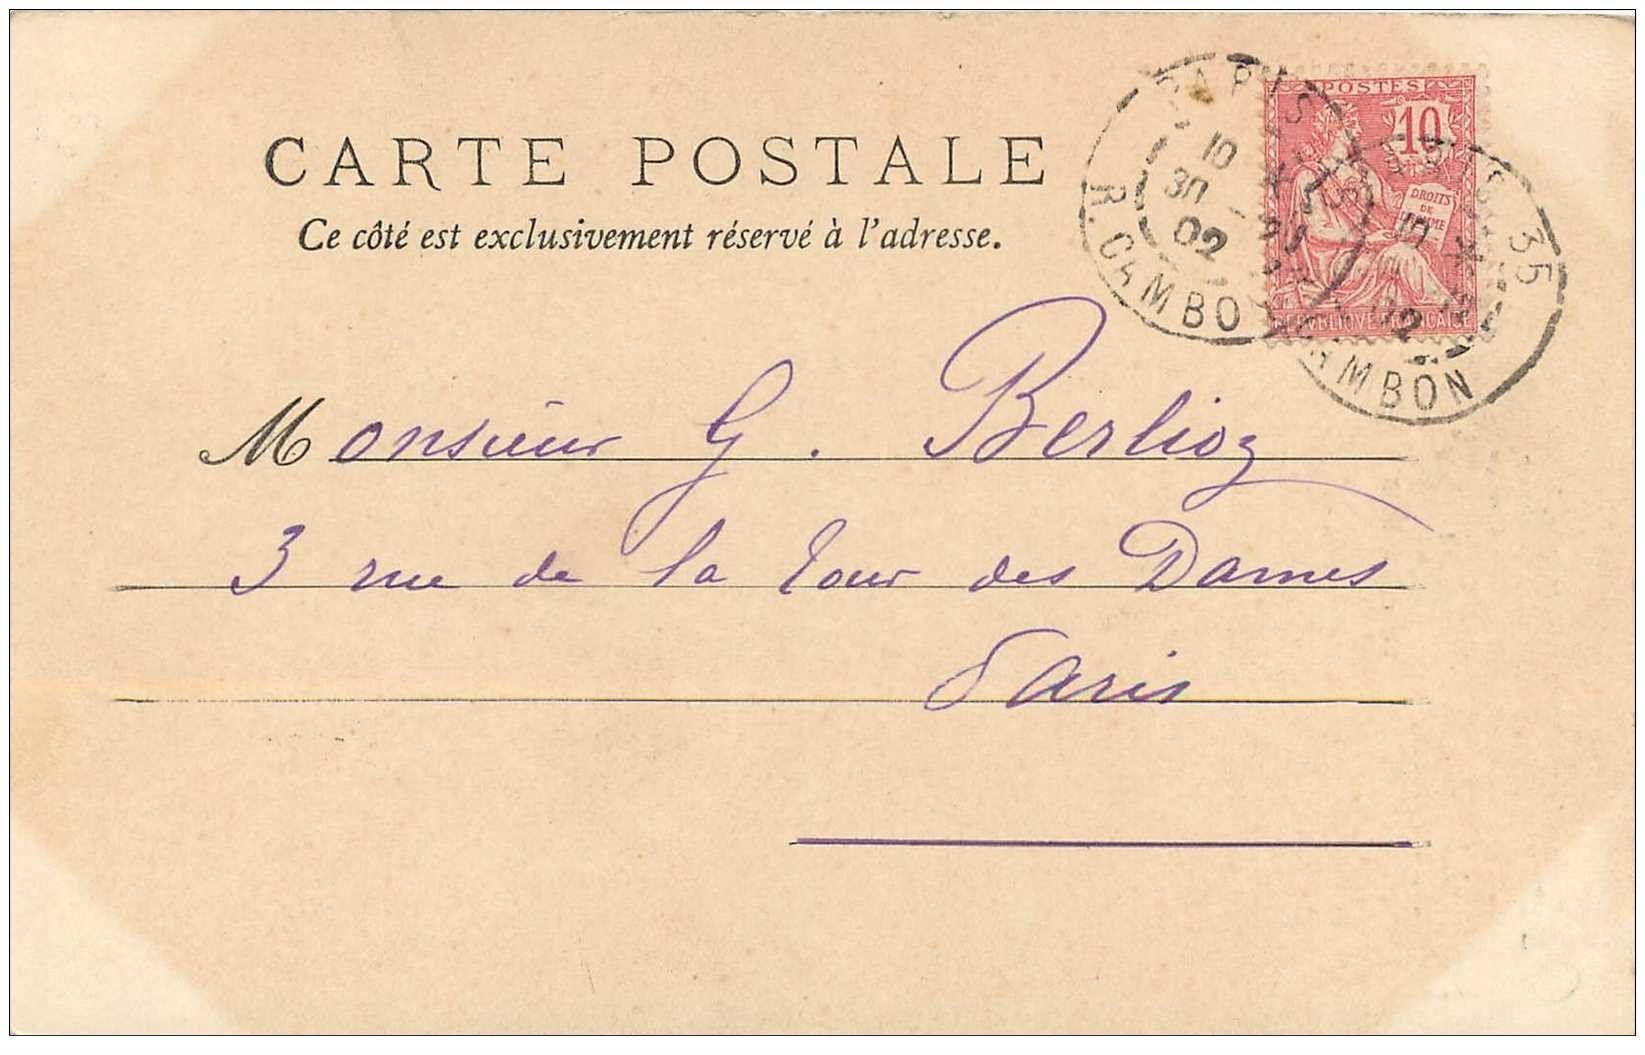 CARTE POSTALE
Ce côté est exclusivement réservé à l'adresse.
POSTES
10
DROITS
DE
REPUBLIQUE FRANCAISE
PARIS
10
30
02
R. CAMBON
35
10
02
CAMBON
Monsieur G. Berlioz
3 rue de la Tour des Dames
Paris